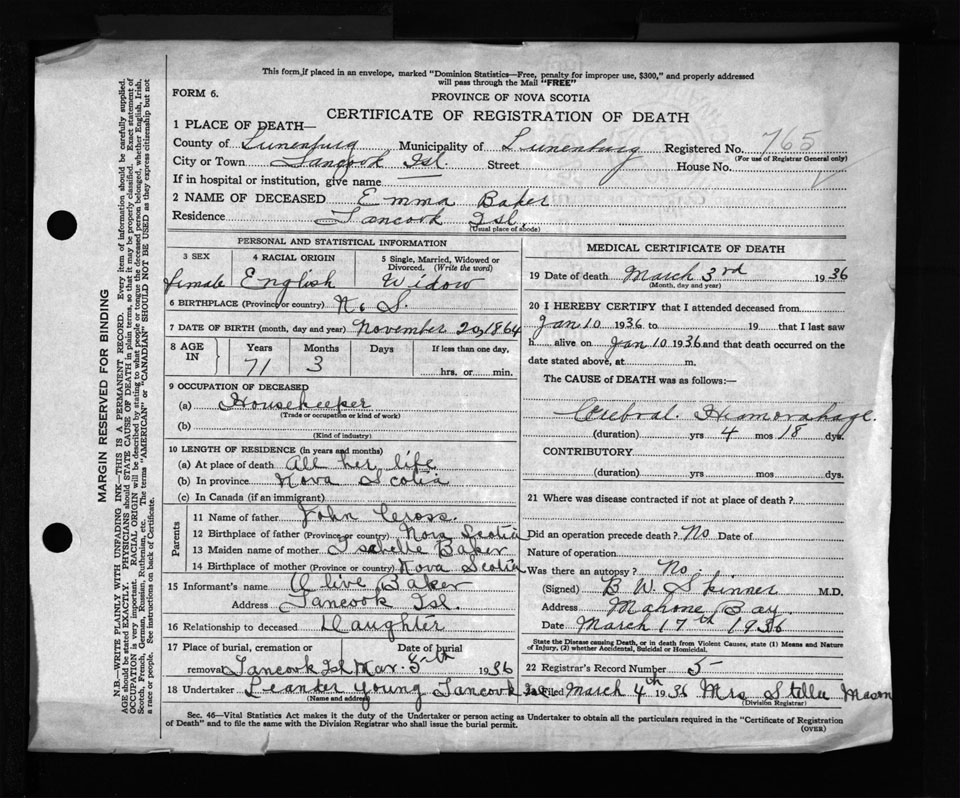 This form, if placed in an envelope, marked "Dominion Statistics—Free, penalty for improper use, $300," and properly addressed
will pass through the Mail "FREE"
FORM 6.
PROVINCE OF NOVA SCOTIA
CERTIFICATE OF REGISTRATION OF DEATH
1 PLACE OF DEATH—
County of Lunenburg Municipality of Lunenburg Registered No. 765
(For use of Registrar General only)
City or Town Tancook Isl. Street House No.
If in hospital or institution, give name —
2 NAME OF DECEASED Emma Baker
Residence Tancook Isl.
(Usual place of abode)
PERSONAL AND STATISTICAL INFORMATION
3 SEX 4 RACIAL ORIGIN 5 Single, Married, Widowed or Divorced. (Write the word)
female English Widow
6 BIRTHPLACE (Province or country) N. S.
7 DATE OF BIRTH (month, day and year) November 20, 1864
8 AGE IN Years Months Days If less than one day,
71 3 hrs. or min.
9 OCCUPATION OF DECEASED
(a) Housekeeper
(Trade or occupation or kind of work)
(b)
(Kind of industry)
10 LENGTH OF RESIDENCE (in years and months)
(a) At place of death all her life
(b) In province Nova Scotia
(c) In Canada (if an immigrant)
Parents
11 Name of father John Cross.
12 Birthplace of father (Province or country) Nova Scotia
13 Maiden name of mother Isabelle Baker
14 Birthplace of mother (Province or country) Nova Scotia
15 Informant's name Olive Baker
Address Tancook Isl.
16 Relationship to deceased Daughter
17 Place of burial, cremation or Date of burial
removal Tancook Isl Mar. 5th 1936
18 Undertaker Leander Young Tancook Isl
(Name and address)
MEDICAL CERTIFICATE OF DEATH
19 Date of death March 3rd 1936
(Month, day and year)
20 I HEREBY CERTIFY that I attended deceased from
Jan 10 1936 to 19 that I last saw
h alive on Jan 10 1936 and that death occurred on the
date stated above, at m.
The CAUSE of DEATH was as follows:—
Cerebral Hemorahage.
(duration) yrs 4 mos 18 dys.
CONTRIBUTORY
(duration) yrs. mos. dys.
21 Where was disease contracted if not at place of death?
Did an operation precede death? No Date of
Nature of operation
Was there an autopsy? No.
(Signed) B. W. Skinner M.D.
Address Mahone Bay.
Date March 17th 1936
State the Disease causing Death, or in death from Violent Causes, state (1) Means and Nature of Injury, (2) whether Accidental, Suicidal or Homicidal.
22 Registrar's Record Number 5
Filed March 4th 1936 Mrs Stella Mason
(Division Registrar)
Sec. 46—Vital Statistics Act makes it the duty of the Undertaker or person acting as Undertaker to obtain all the particulars required in the "Certificate of Registration
of Death" and to file the same with the Division Registrar who shall issue the burial permit.
(OVER)
MARGIN RESERVED FOR BINDING
N.B.—WRITE PLAINLY WITH UNFADING INK—THIS IS A PERMANENT RECORD. Every item of information should be carefully supplied.
AGE should be stated EXACTLY. PHYSICIANS should STATE CAUSE OF DEATH in plain terms, so that it may be properly classified. Exact statement of
OCCUPATION is very important. RACIAL ORIGIN will be described by stating to what people or tongue the deceased person belonged, whether English, Irish,
Scotch, French, German, Russian, Ruthenian, etc. The terms "AMERICAN" or "CANADIAN" SHOULD NOT BE USED as they express citizenship but not
a race or people. See instructions on back of Certificate.